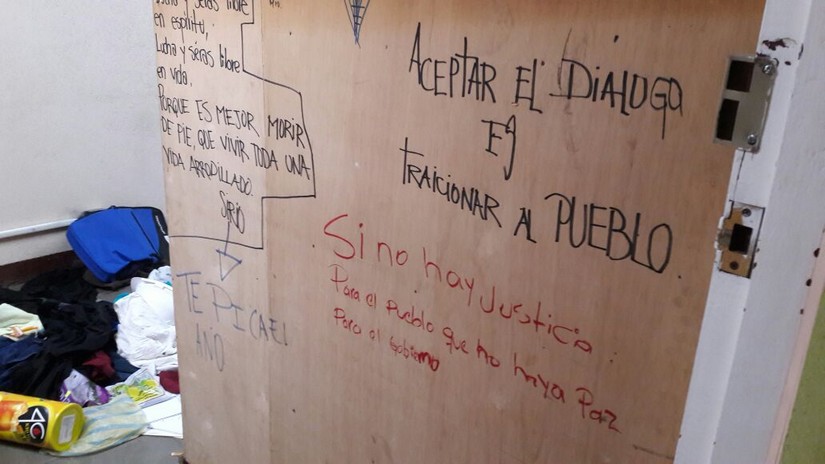 y serás libre
en espíritu,
Lucha y serás libre
en vida.
PORQUE ES MEJOR MORIR
DE PIE, QUE VIVIR TODA UNA
VIDA ARRODILLADO.
SIRIO
TE PICA EL
ANO
ACEPTAR EL DIÁLOGO
ES
TRAICIONAR AL PUEBLO.
Si no hay Justicia
Para el Pueblo que no haya Paz
Para el Gobierno